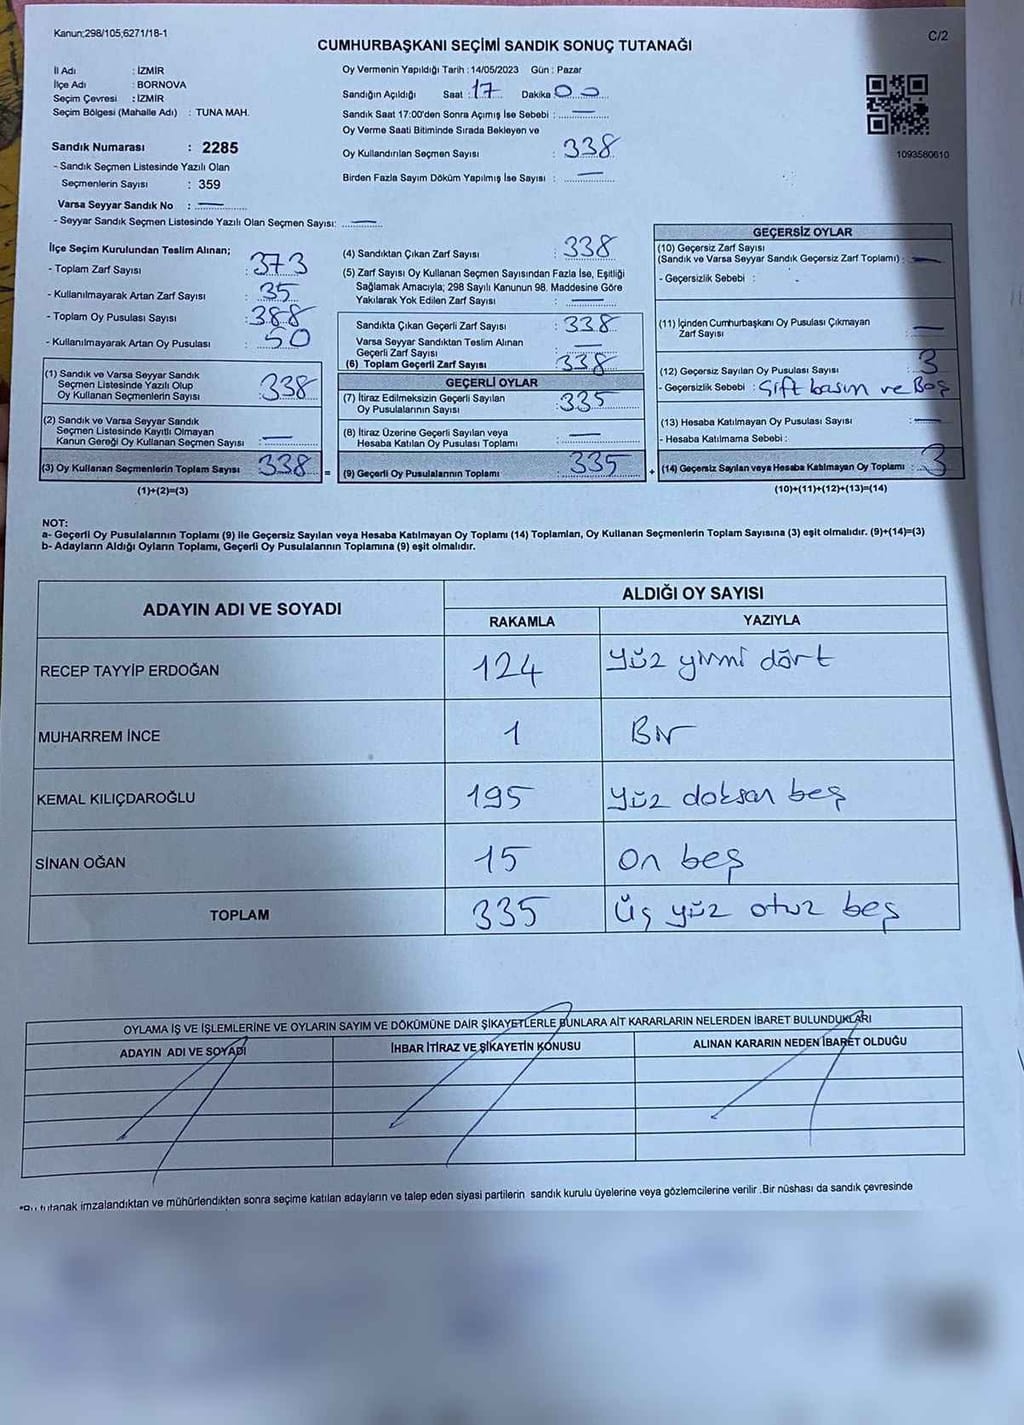 Kanun;298/105,6271/18-1
C/2
CUMHURBAŞKANI SEÇİMİ SANDIK SONUÇ TUTANAĞI
İl Adı : İZMİR
İlçe Adı : BORNOVA
Seçim Çevresi : İZMİR
Seçim Bölgesi (Mahalle Adı) : TUNA MAH.
Oy Vermenin Yapıldığı Tarih : 14/05/2023 Gün : Pazar
Sandığın Açıldığı Saat : 17 Dakika 00
Sandık Saat 17:00'den Sonra Açımış İse Sebebi : —
Oy Verme Saati Bitiminde Sırada Bekleyen ve
Oy Kullandırılan Seçmen Sayısı : 338
Birden Fazla Sayım Döküm Yapılmış İse Sayısı : —
1093580610
Sandık Numarası : 2285
- Sandık Seçmen Listesinde Yazılı Olan
Seçmenlerin Sayısı : 359
Varsa Seyyar Sandık No : —
- Seyyar Sandık Seçmen Listesinde Yazılı Olan Seçmen Sayısı: —
İlçe Seçim Kurulundan Teslim Alınan;
- Toplam Zarf Sayısı : 373
- Kullanılmayarak Artan Zarf Sayısı : 35
- Toplam Oy Pusulası Sayısı : 388
- Kullanılmayarak Artan Oy Pusulası : 50
(1) Sandık ve Varsa Seyyar Sandık
Seçmen Listesinde Yazılı Olup
Oy Kullanan Seçmenlerin Sayısı : 338
(2) Sandık ve Varsa Seyyar Sandık
Seçmen Listesinde Kayıtlı Olmayan
Kanun Gereği Oy Kullanan Seçmen Sayısı : —
(3) Oy Kullanan Seçmenlerin Toplam Sayısı : 338
(1)+(2)=(3)
(4) Sandıktan Çıkan Zarf Sayısı : 338
(5) Zarf Sayısı Oy Kullanan Seçmen Sayısından Fazla İse, Eşitliği
Sağlamak Amacıyla; 298 Sayılı Kanunun 98. Maddesine Göre
Yakılarak Yok Edilen Zarf Sayısı : —
Sandıkta Çıkan Geçerli Zarf Sayısı : 338
Varsa Seyyar Sandıktan Teslim Alınan
Geçerli Zarf Sayısı : —
(6) Toplam Geçerli Zarf Sayısı : 338
GEÇERLİ OYLAR
(7) İtiraz Edilmeksizin Geçerli Sayılan
Oy Pusulalarının Sayısı : 335
(8) İtiraz Üzerine Geçerli Sayılan veya
Hesaba Katılan Oy Pusulası Toplamı : —
= (9) Geçerli Oy Pusulalarının Toplamı : 335
GEÇERSİZ OYLAR
(10) Geçersiz Zarf Sayısı
(Sandık ve Varsa Seyyar Sandık Geçersiz Zarf Toplamı) : —
- Geçersizlik Sebebi :
(11) İçinden Cumhurbaşkanı Oy Pusulası Çıkmayan
Zarf Sayısı : —
(12) Geçersiz Sayılan Oy Pusulası Sayısı : 3
- Geçersizlik Sebebi : Çift basım ve Boş
(13) Hesaba Katılmayan Oy Pusulası Sayısı : —
- Hesaba Katılmama Sebebi :
+ (14) Geçersiz Sayılan veya Hesaba Katılmayan Oy Toplamı : 3
(10)+(11)+(12)+(13)=(14)
NOT:
a- Geçerli Oy Pusulalarının Toplamı (9) ile Geçersiz Sayılan veya Hesaba Katılmayan Oy Toplamı (14) Toplamları, Oy Kullanan Seçmenlerin Toplam Sayısına (3) eşit olmalıdır. (9)+(14)=(3)
b- Adayların Aldığı Oyların Toplamı, Geçerli Oy Pusulalarının Toplamına (9) eşit olmalıdır.
ADAYIN ADI VE SOYADI ALDIĞI OY SAYISI
RAKAMLA YAZIYLA
RECEP TAYYİP ERDOĞAN 124 Yüz yirmi dört
MUHARREM İNCE 1 Bir
KEMAL KILIÇDAROĞLU 195 Yüz doksan beş
SİNAN OĞAN 15 On beş
TOPLAM 335 Üç yüz otuz beş
OYLAMA İŞ VE İŞLEMLERİNE VE OYLARIN SAYIM VE DÖKÜMÜNE DAİR ŞİKAYETLERLE BUNLARA AİT KARARLARIN NELERDEN İBARET BULUNDUKLARI
ADAYIN ADI VE SOYADI İHBAR İTİRAZ VE ŞİKAYETİN KONUSU ALINAN KARARIN NEDEN İBARET OLDUĞU
*Bu tutanak imzalandıktan ve mühürlendikten sonra seçime katılan adayların ve talep eden siyasi partilerin sandık kurulu üyelerine veya gözlemcilerine verilir .Bir nüshası da sandık çevresinde